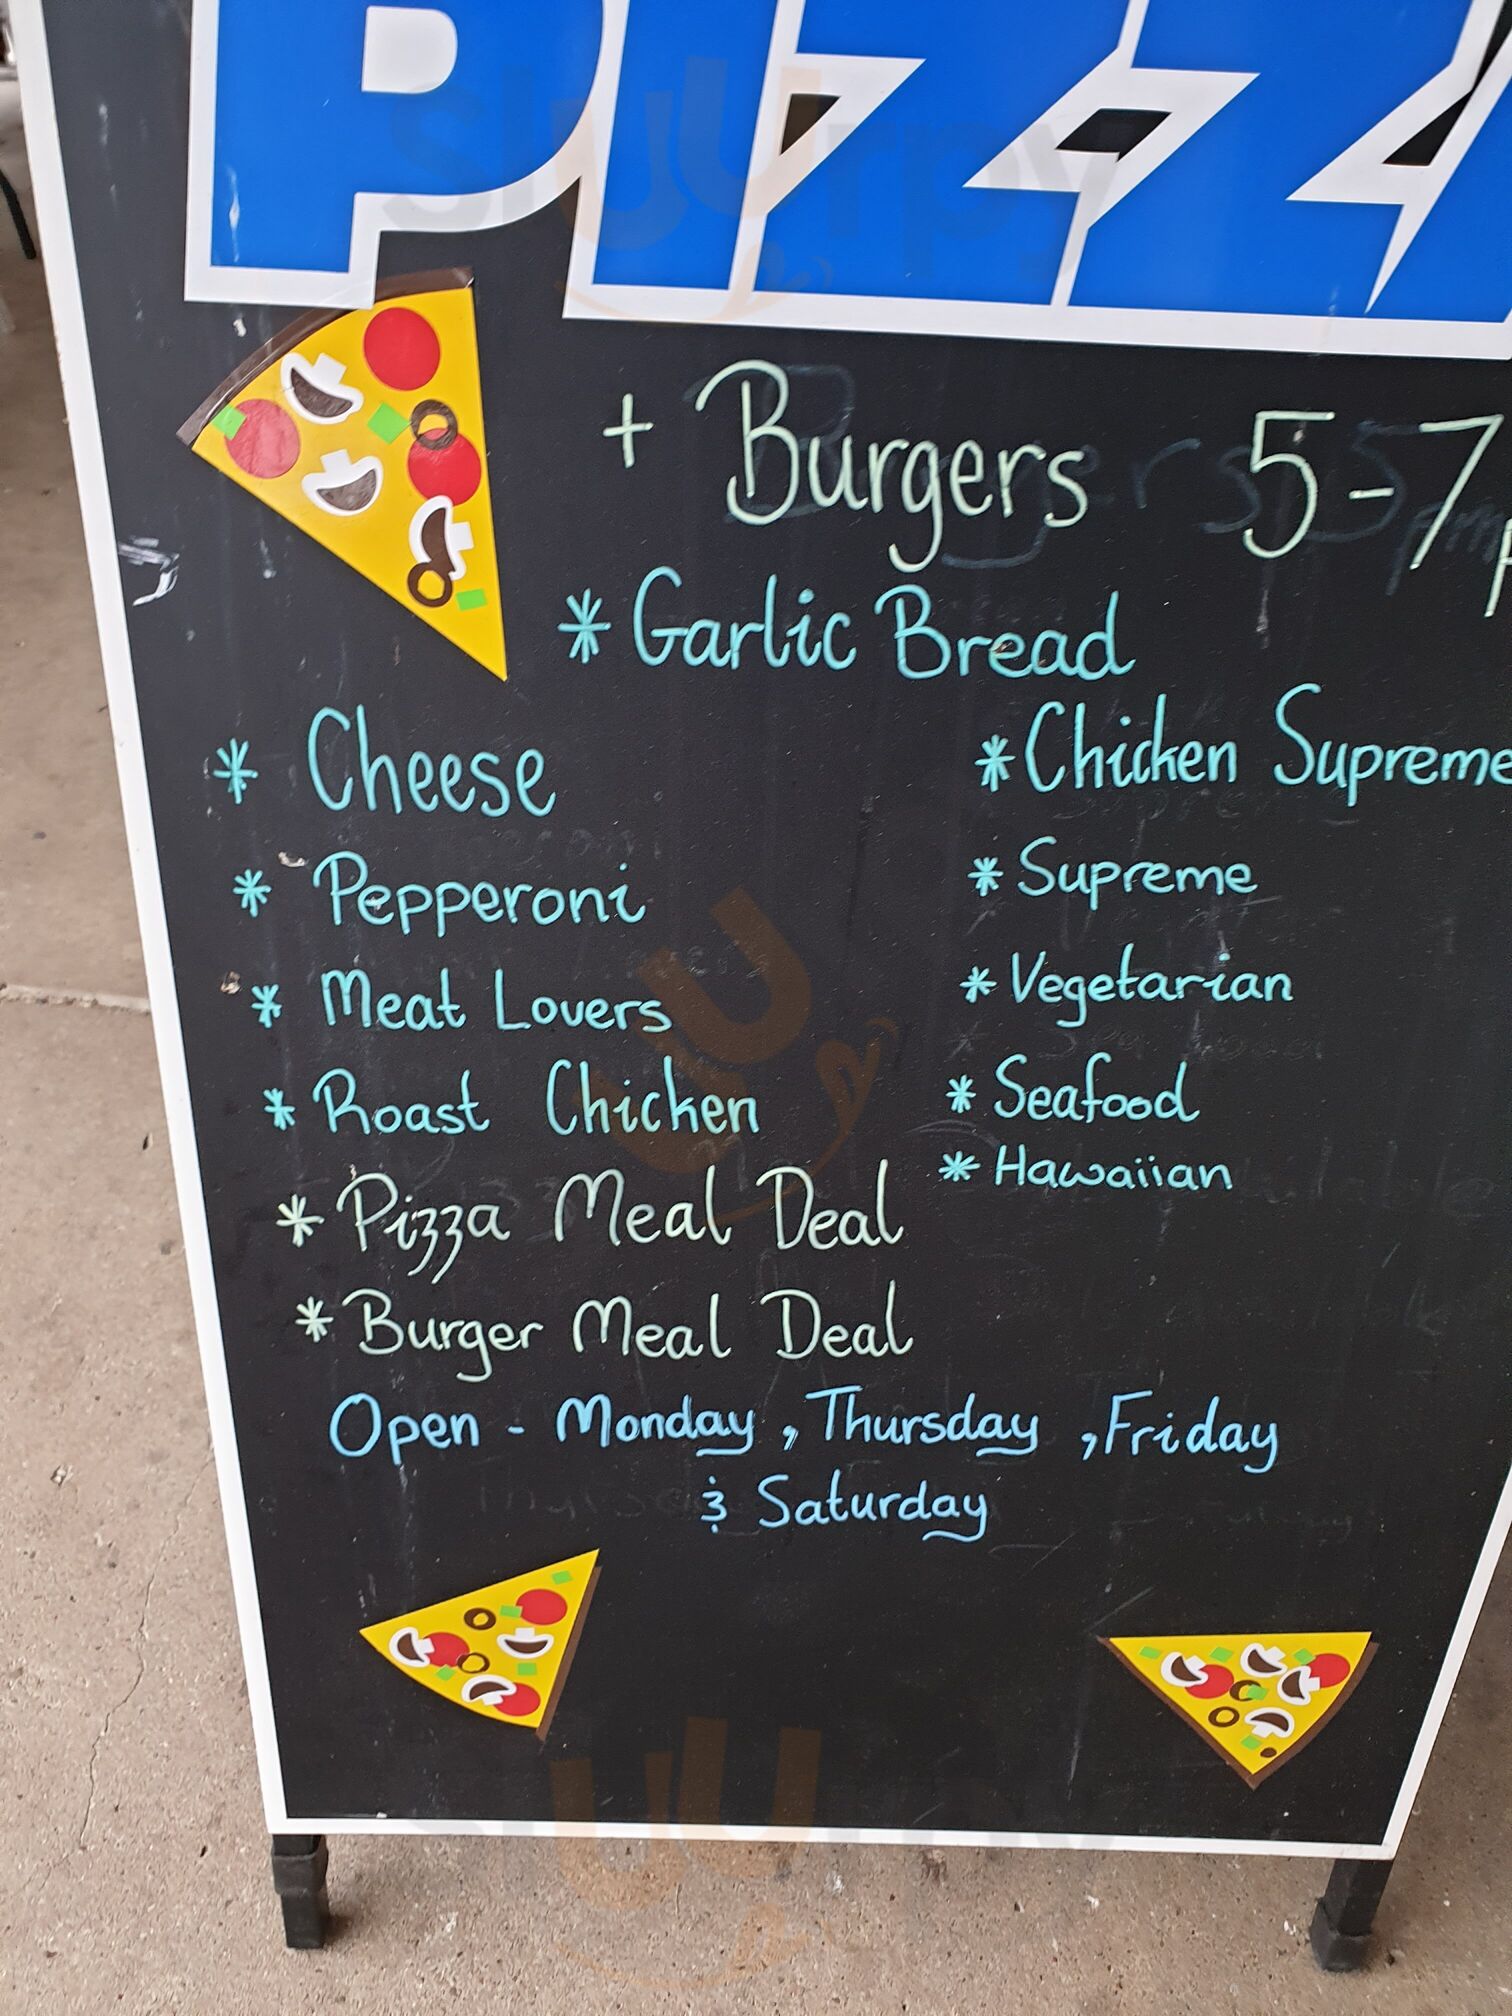 + Burgers 5-7p
* Garlic Bread
* Cheese
* Pepperoni
* Meat Lovers
* Roast Chicken
* Chicken Supreme
* Supreme
* Vegetarian
* Seafood
* Hawaiian
* Pizza Meal Deal
* Burger Meal Deal
Open - Monday, Thursday, Friday
& Saturday
sluurpy